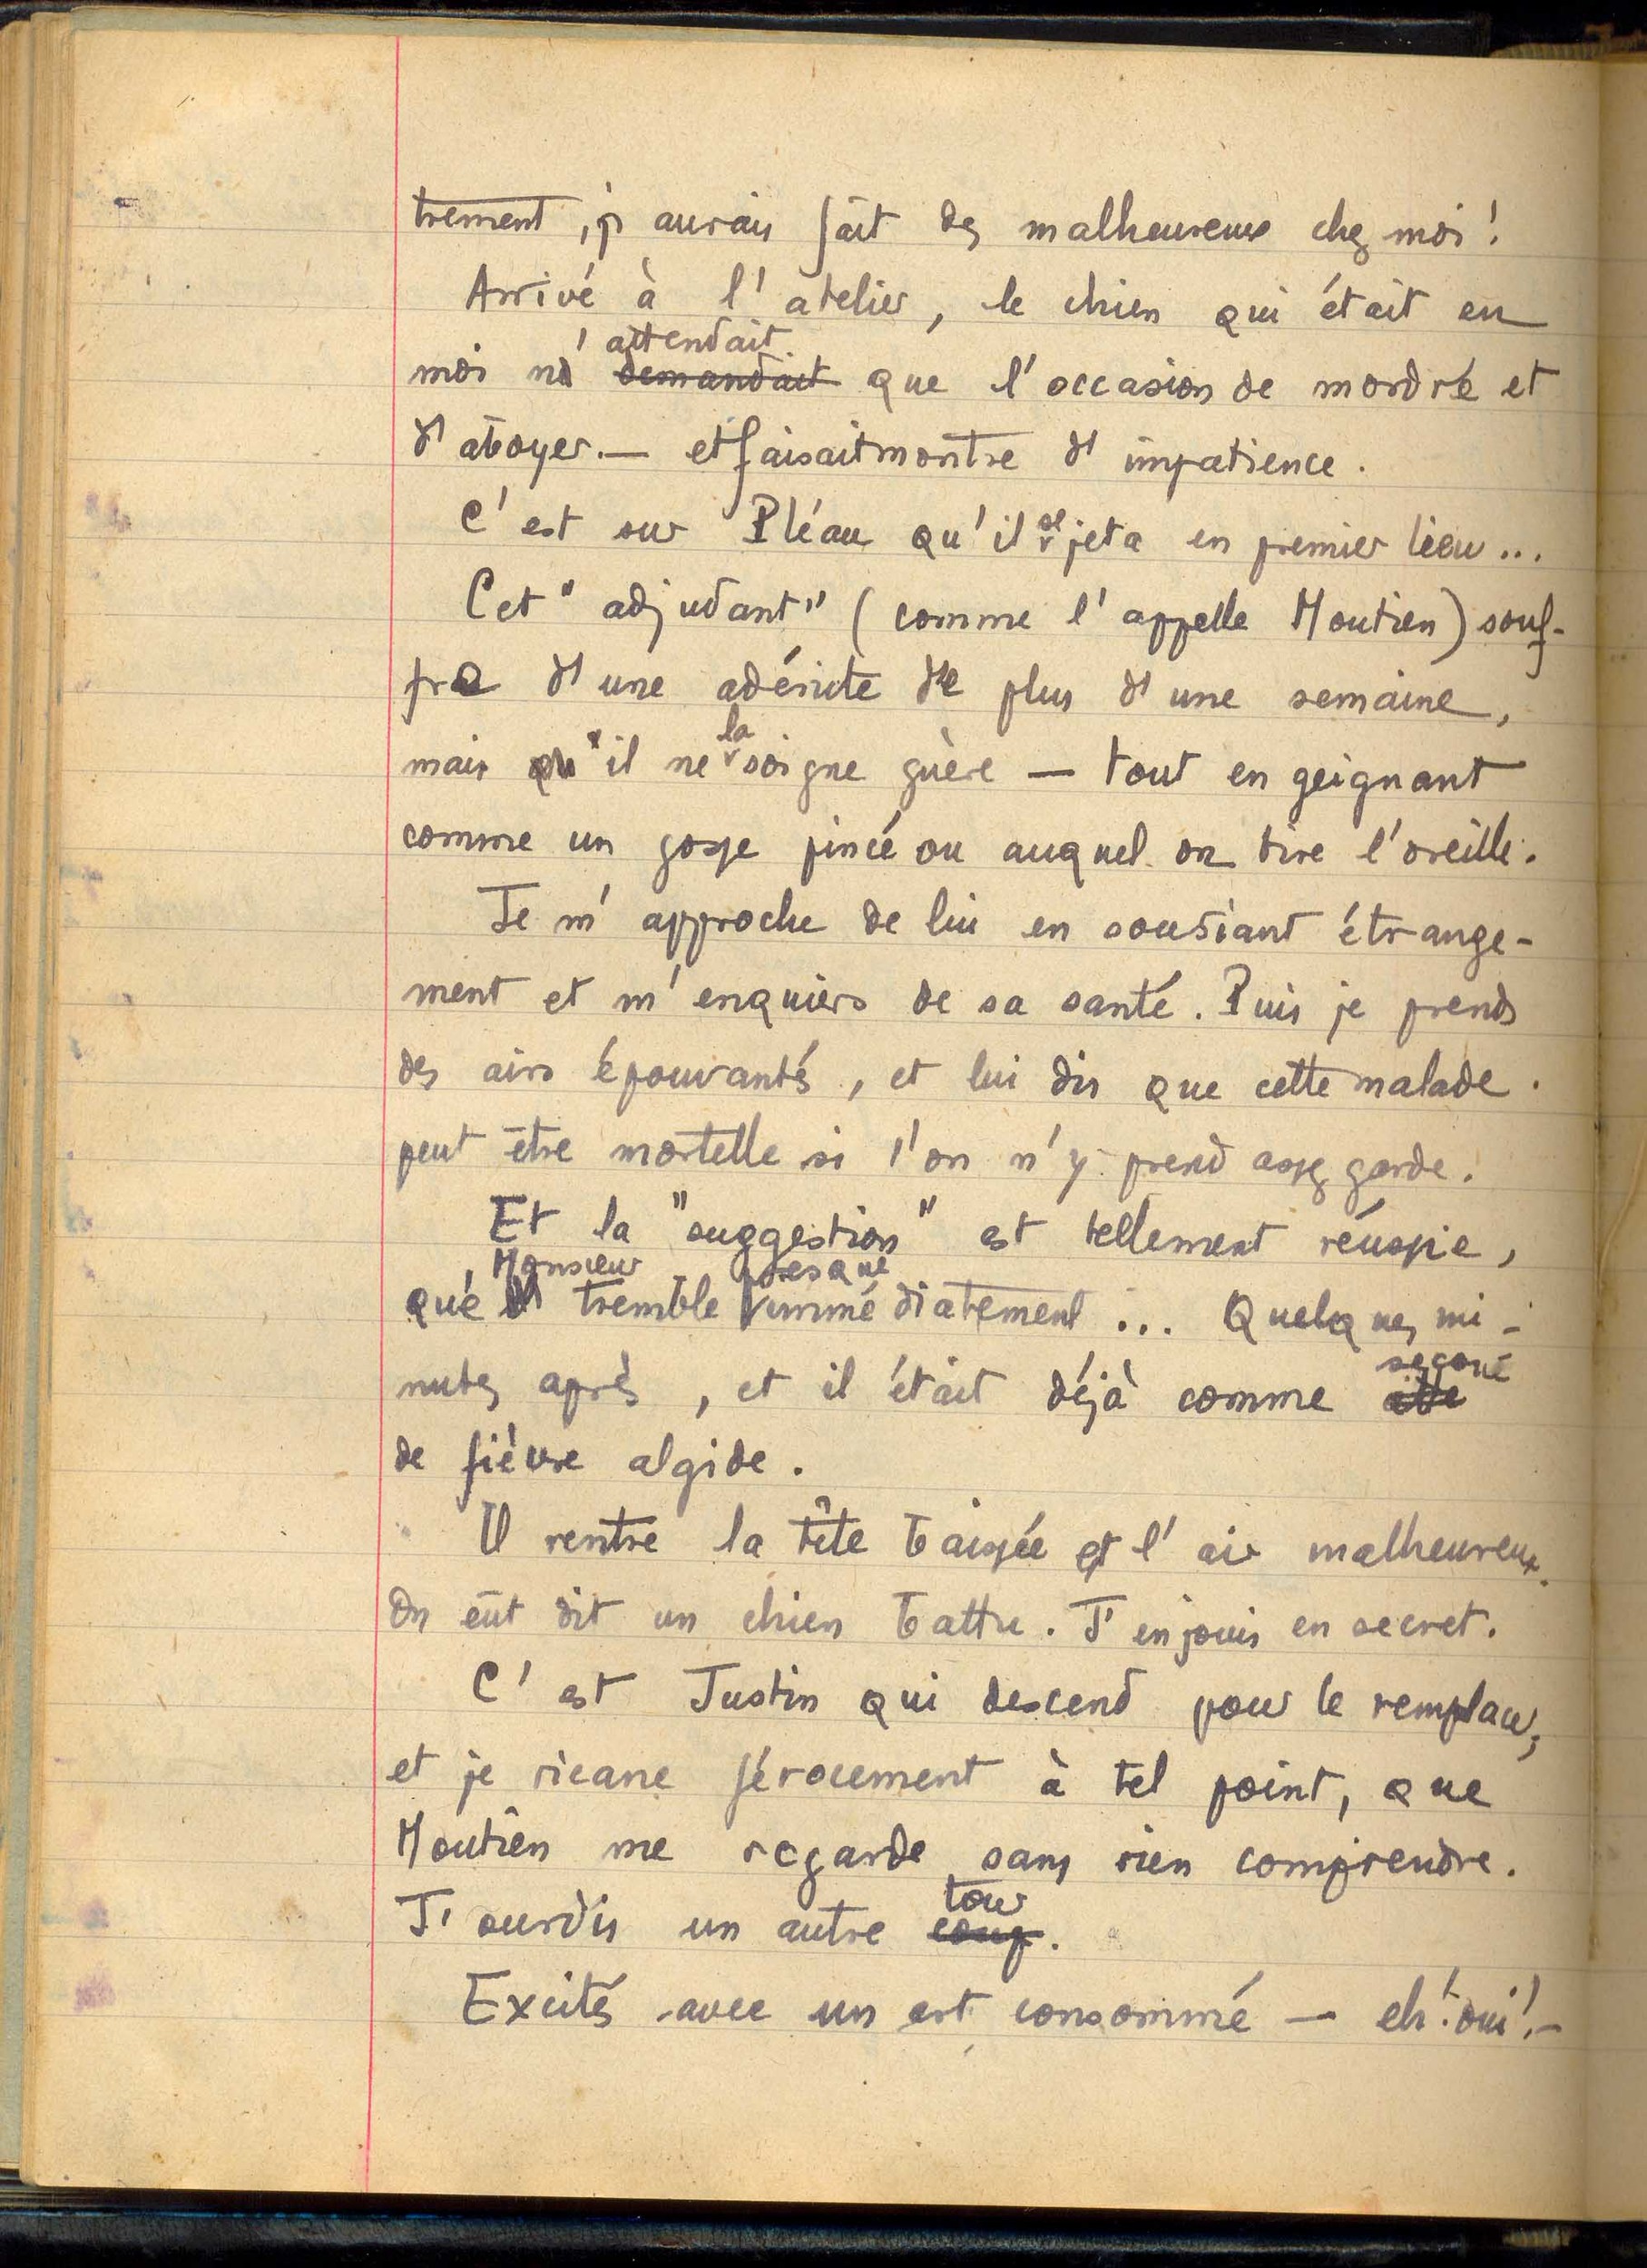 trement, j'aurais fait des malheureux chez moi!
Arrivé à l'atelier, le chien qui était en
moi n'attendait demandait que l'occasion de mordre et
d'aboyer. — et faisait montre d'impatience.
C'est sur Pléau qu'il se jeta en premier lieu...
Cet "adjudant" (comme l'appelle Moutien) souf-
fre d'une adénite de plus d'une semaine,
mais qu'il ne la soigne guère — tout en geignant
comme un gosse pincé ou auquel on tire l'oreille.
Je m'approche de lui en souriant étrange-
ment et m'enquiers de sa santé. Puis je prends
des airs épouvantés, et lui dis que cette malade
peut être mortelle si l'on n'y prend assez garde.
Et la "suggestion" est tellement réussie,
que Monsieur tremble presque immédiatement... Quelques mi-
nutes après, et il était déjà comme secoué
de fièvre algide.
Il rentre la tête baissée et l'air malheureux.
On eût dit un chien battu. J'en jouis en secret.
C'est Justin qui descend pour le remplacer,
et je ricane férocement à tel point, que
Moutien me regarde sans rien comprendre.
J'ourdis un autre tour coup.
Excités avec un art consommé — eh! oui! —